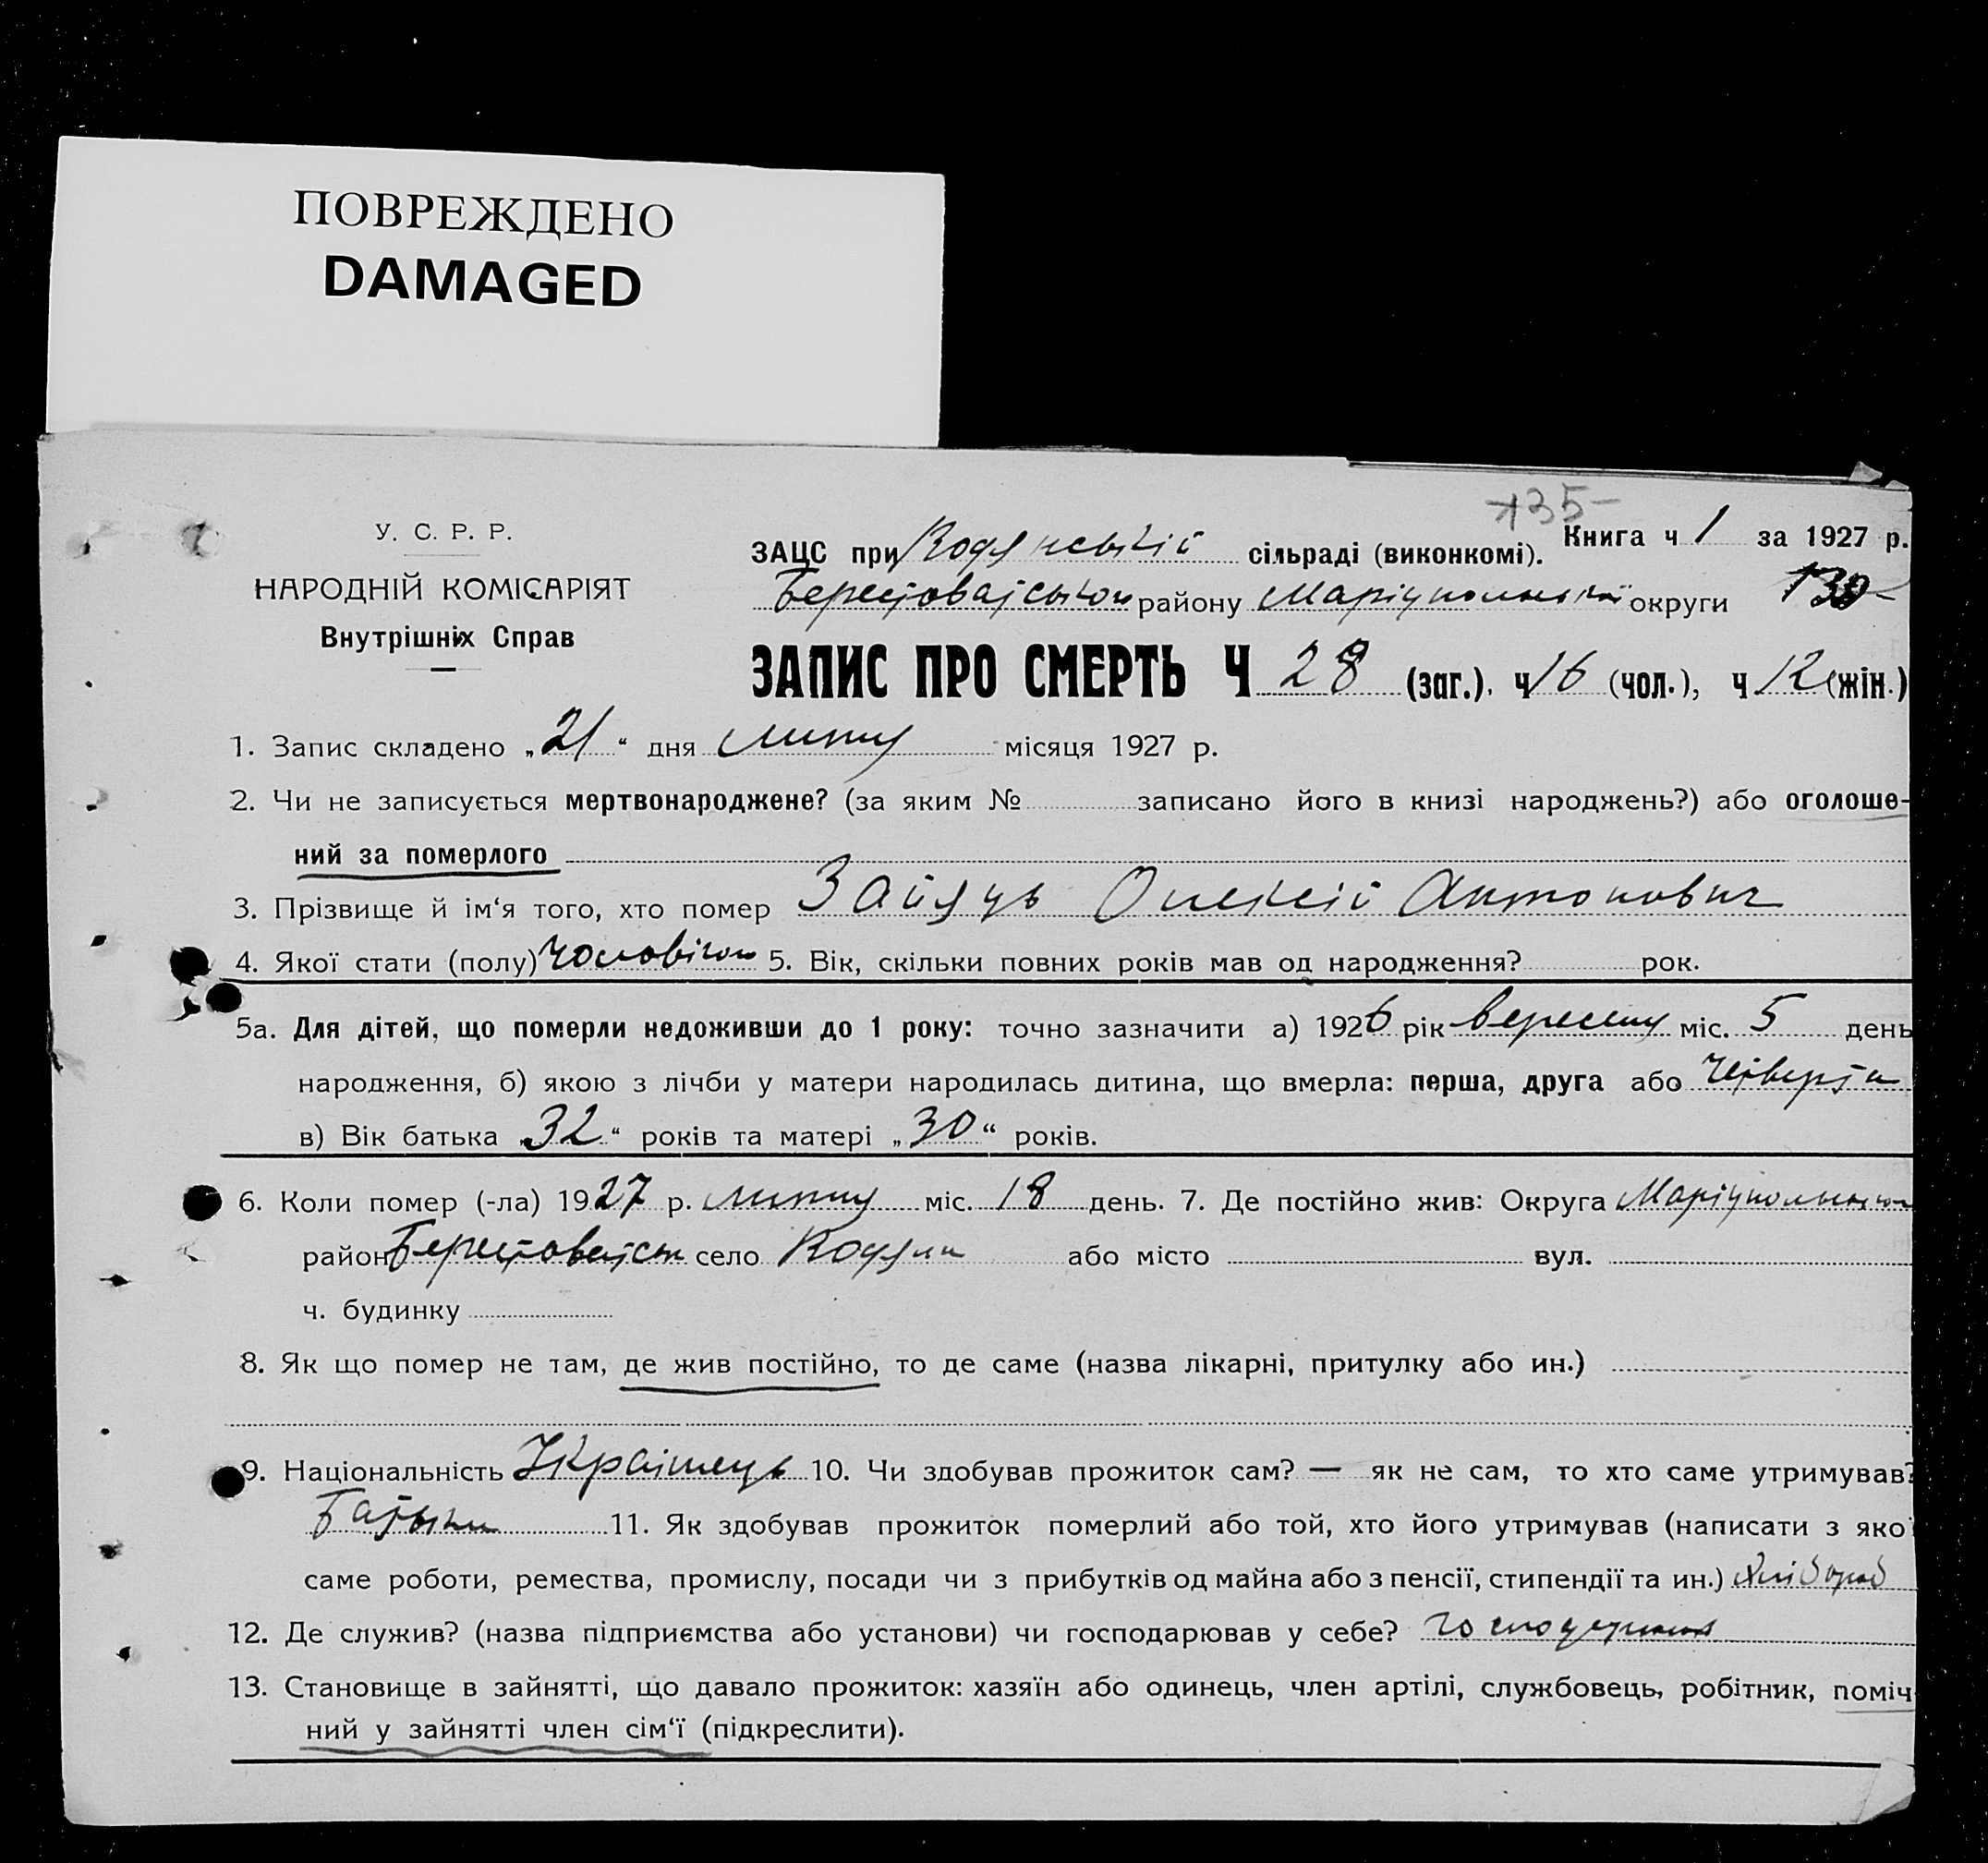 ПОВРЕЖДЕНО
DAMAGED
135-
У. С. Р. Р.
НАРОДНІЙ КОМІСАРІЯТ
Внутрішніх Справ
Книга ч 1 за 1927 р.
ЗАЦС при Водянській сільраді (виконкомі).
району Маріупольської округи
ЗАПИС ПРО СМЕРТЬ Ч 28 (заг.). ч 16 (чол.), ч 12 (жін.)
1. Запис складено „21“ дня люту місяця 1927 р.
2. Чи не записується мертвонароджене? (за яким № записано його в книзі народжень?) або оголоше-
ний за померлого
3. Прізвище й ім‘я того, хто помер Зайяць Олексій Антонович
4. Якої стати (полу) 5. Вік, скільки повних років мав од народження? рок.
5а. Для дітей, що померли недоживши до 1 року: точно зазначити а) 1926 рік міс. 5 день
народження, б) якою з лічби у матери народилась дитина, що вмерла: перша, друга або
в) Вік батька „32“ років та матері „30“ років.
6. Коли помер (-ла) 1927 р. люту міс. 18 день. 7. Де постійно жив: Округа
район село або місто вул.
ч. будинку
8. Як що помер не там, де жив постійно, то де саме (назва лікарні, притулку або ин.)
9. Національність Українець 10. Чи здобував прожиток сам? — як не сам, то хто саме утримував?
11. Як здобував прожиток померлий або той, хто його утримував (написати з яко
саме роботи, ремества, промислу, посади чи з прибутків од майна або з пенсії, стипендії та ин.) хлібороб
12. Де служив? (назва підприємства або установи) чи господарював у себе?
13. Становище в зайнятті, що давало прожиток: хазяїн або одинець, член артілі, службовець, робітник, поміч
ний у зайнятті член сім‘ї (підкреслити).